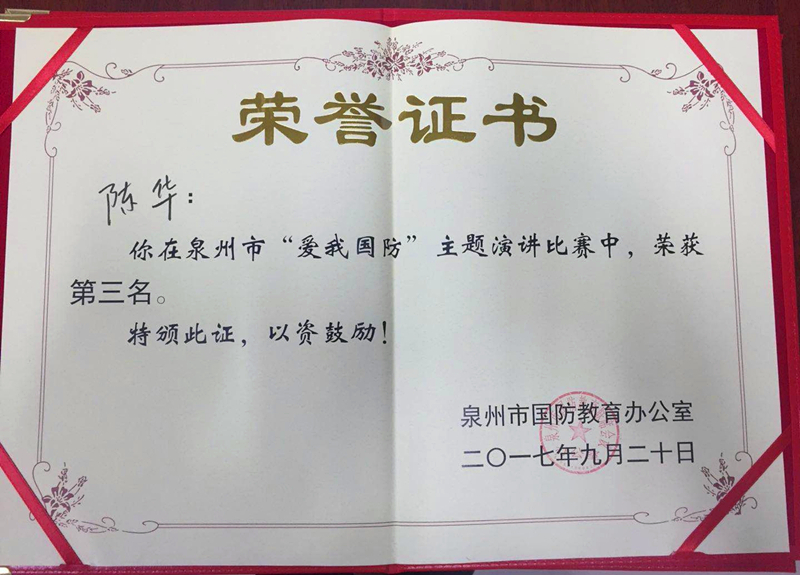 荣誉证书
陈华：
你在泉州市“爱我国防”主题演讲比赛中，荣获
第三名。
特颁此证，以资鼓励！
泉州市国防教育办公室
二〇一七年九月二十日